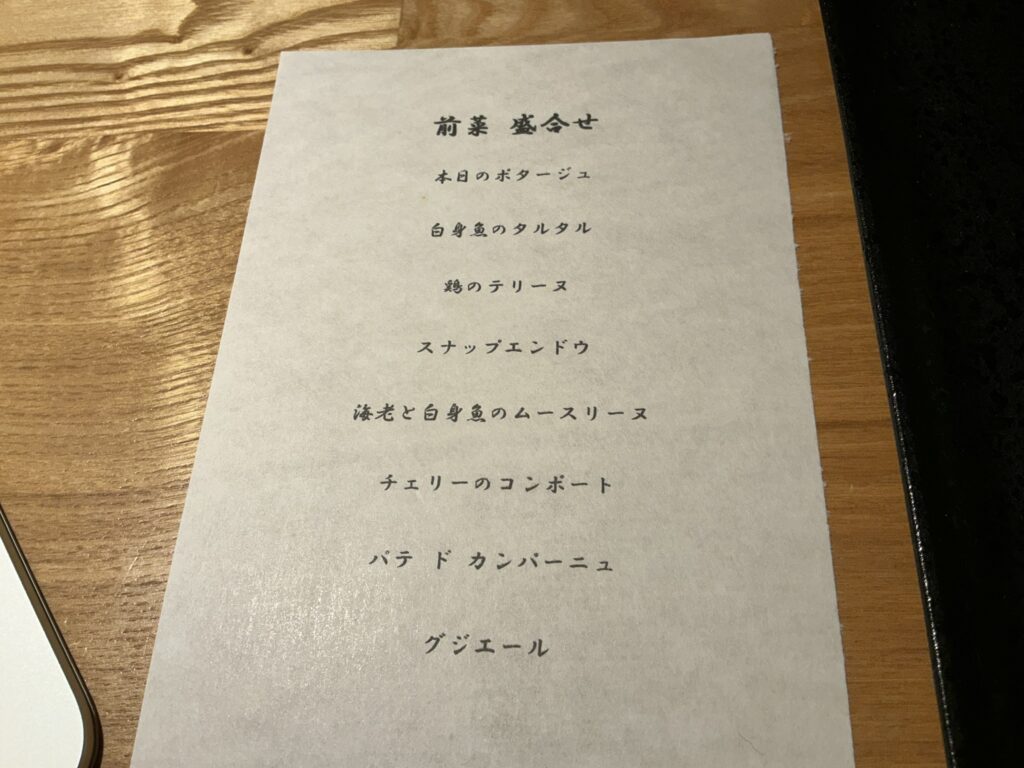 前菜 盛合せ
本日のポタージュ
白身魚のタルタル
鶏のテリーヌ
スナップエンドウ
海老と白身魚のムースリーヌ
チェリーのコンポート
パテ ド カンパーニュ
グジエール